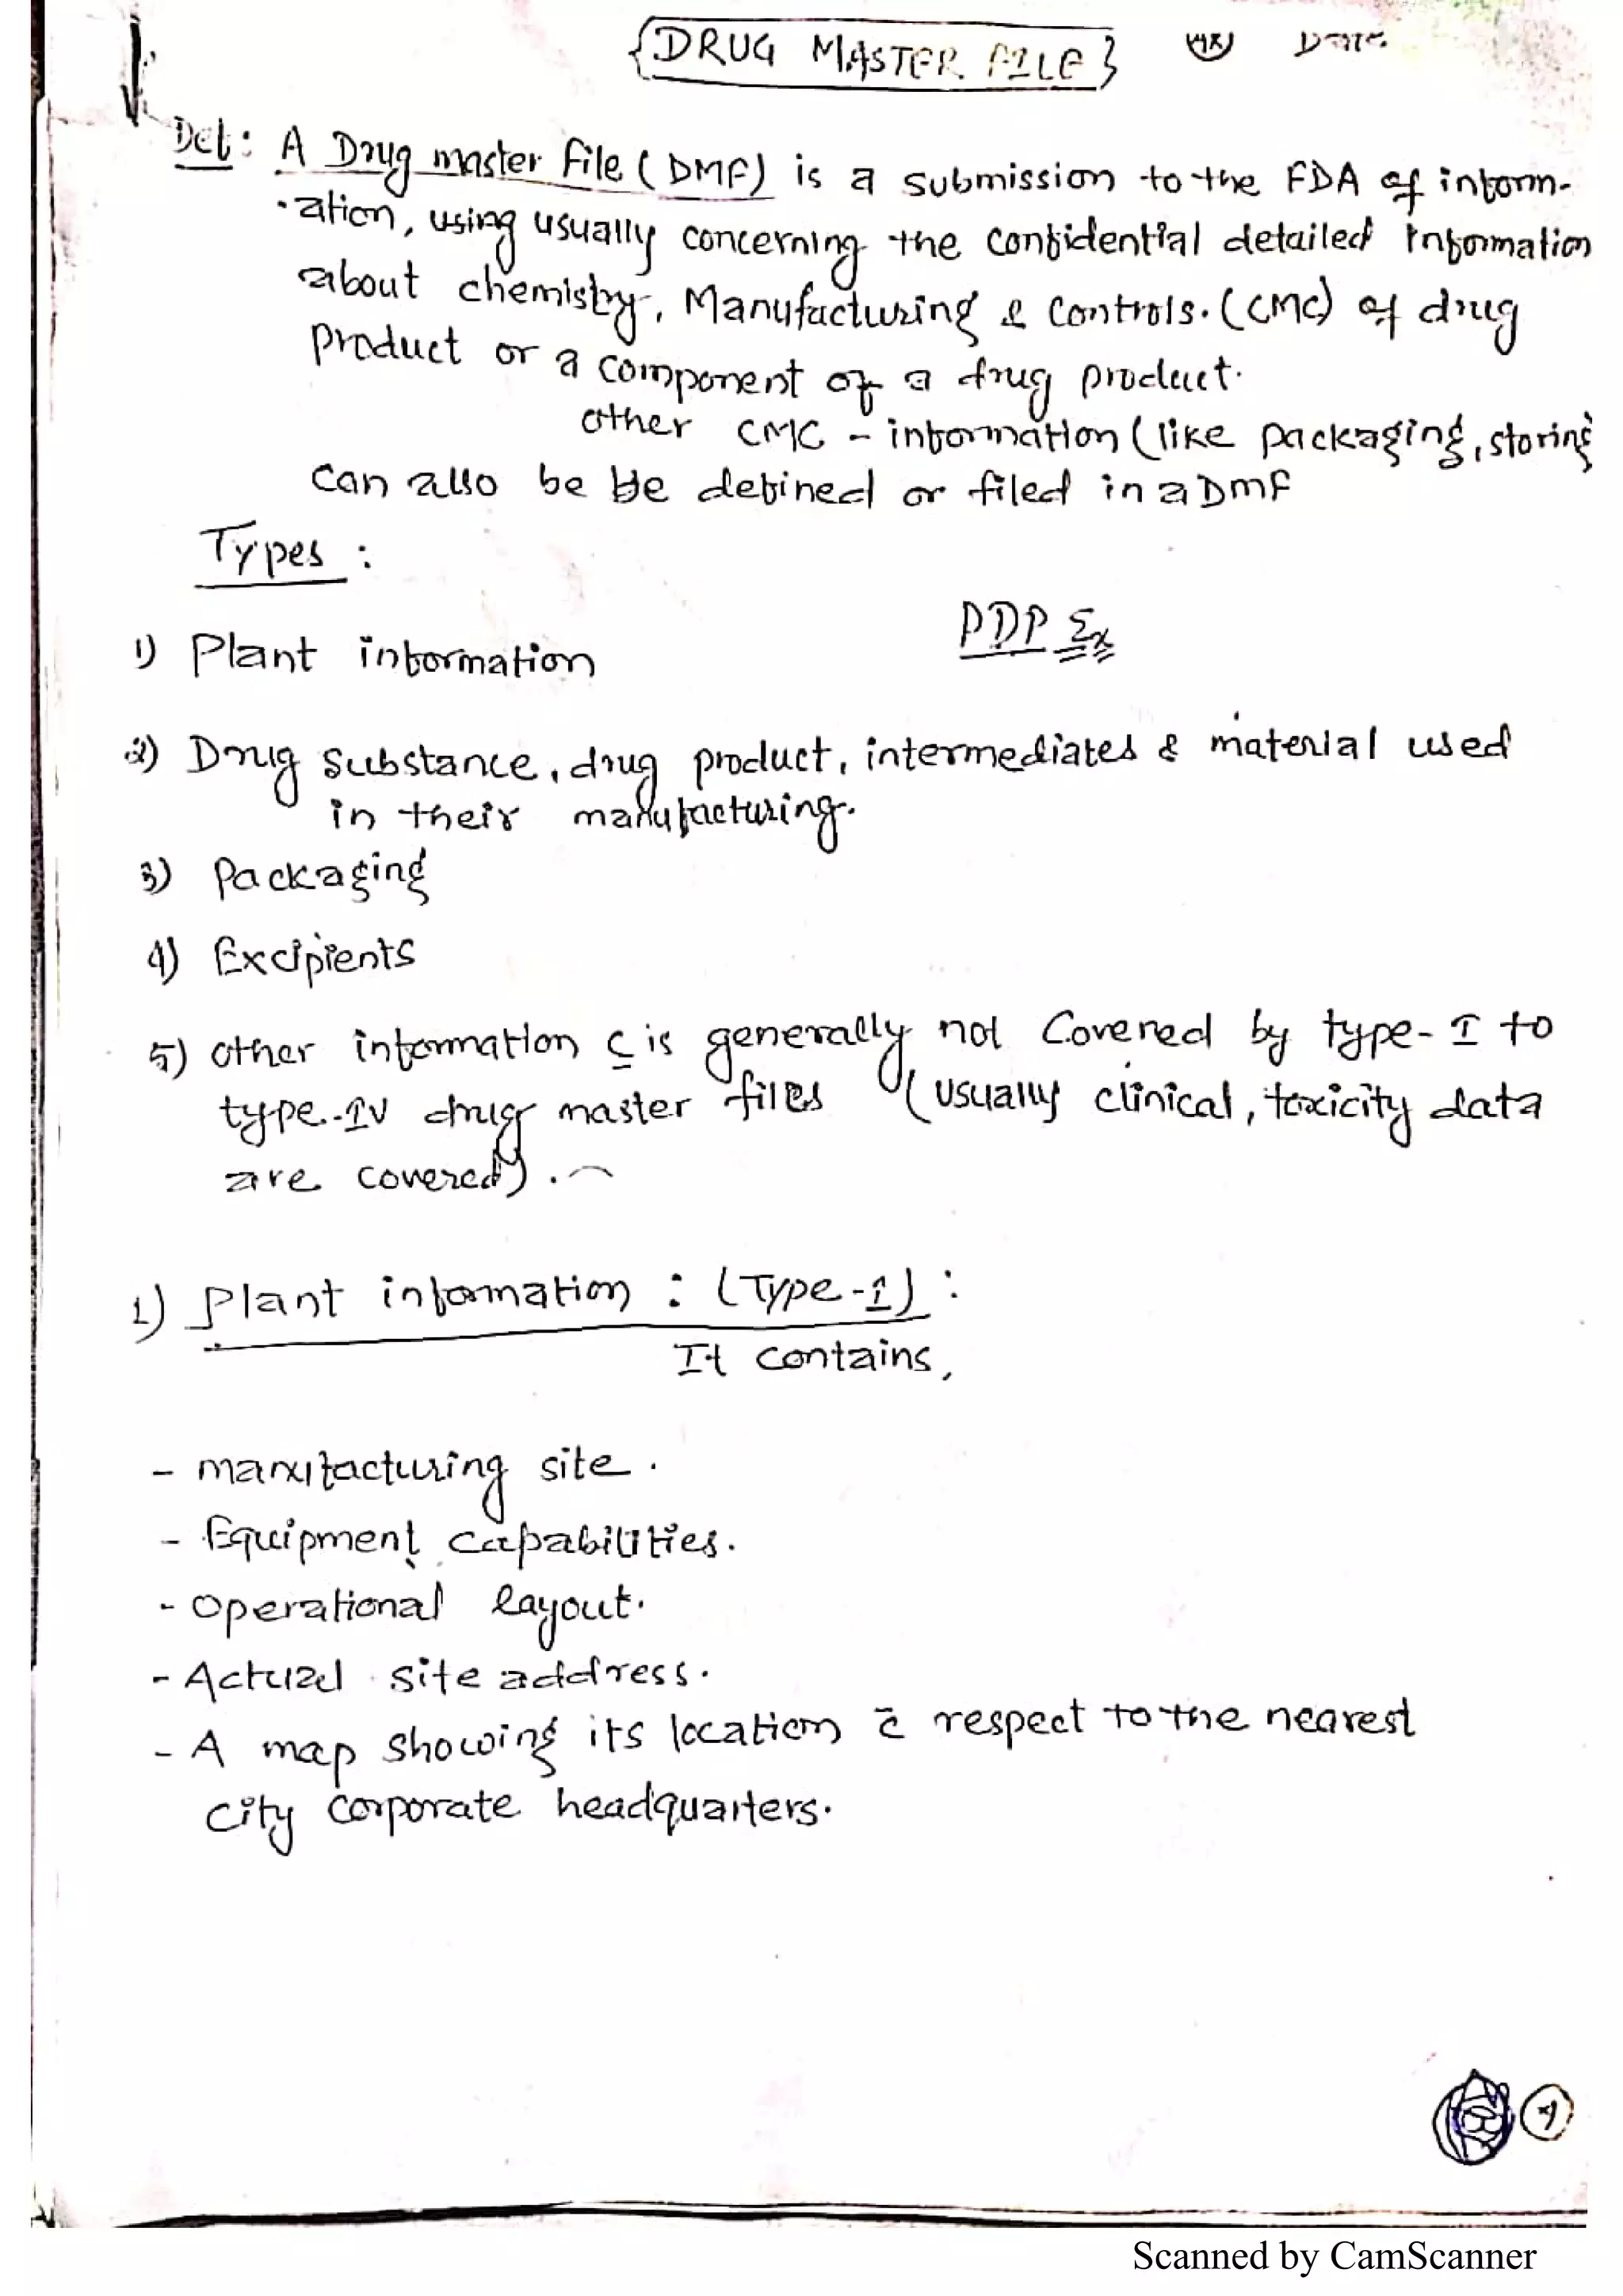 {DRUG MASTER FILE}
Def: A Drug master File (DMF) is a submission to the FDA of inform-
-ation, using usually concerning the confidential detailed information
about chemistry, Manufacturing & Controls. (CMC) of drug
Product or a component of a drug product.
other CMC - information (like packaging, storing
can also be be defined or filed in a DMF
Types :
PDP Ex
1) Plant information
2) Drug Substance, drug product, intermediates & material used
in their manufacturing.
3) Packaging
4) Excipients
5) other information c is generally not Covered by type-I to
type-IV drug master files (usually clinical, toxicity data
are covered).
1) Plant information : (Type-1) :
It contains,
- manufacturing site.
- Equipment capabilities.
- Operational layout.
- Actual site address.
- A map showing its location c̄ respect to the nearest
city corporate headquarters.
Scanned by CamScanner